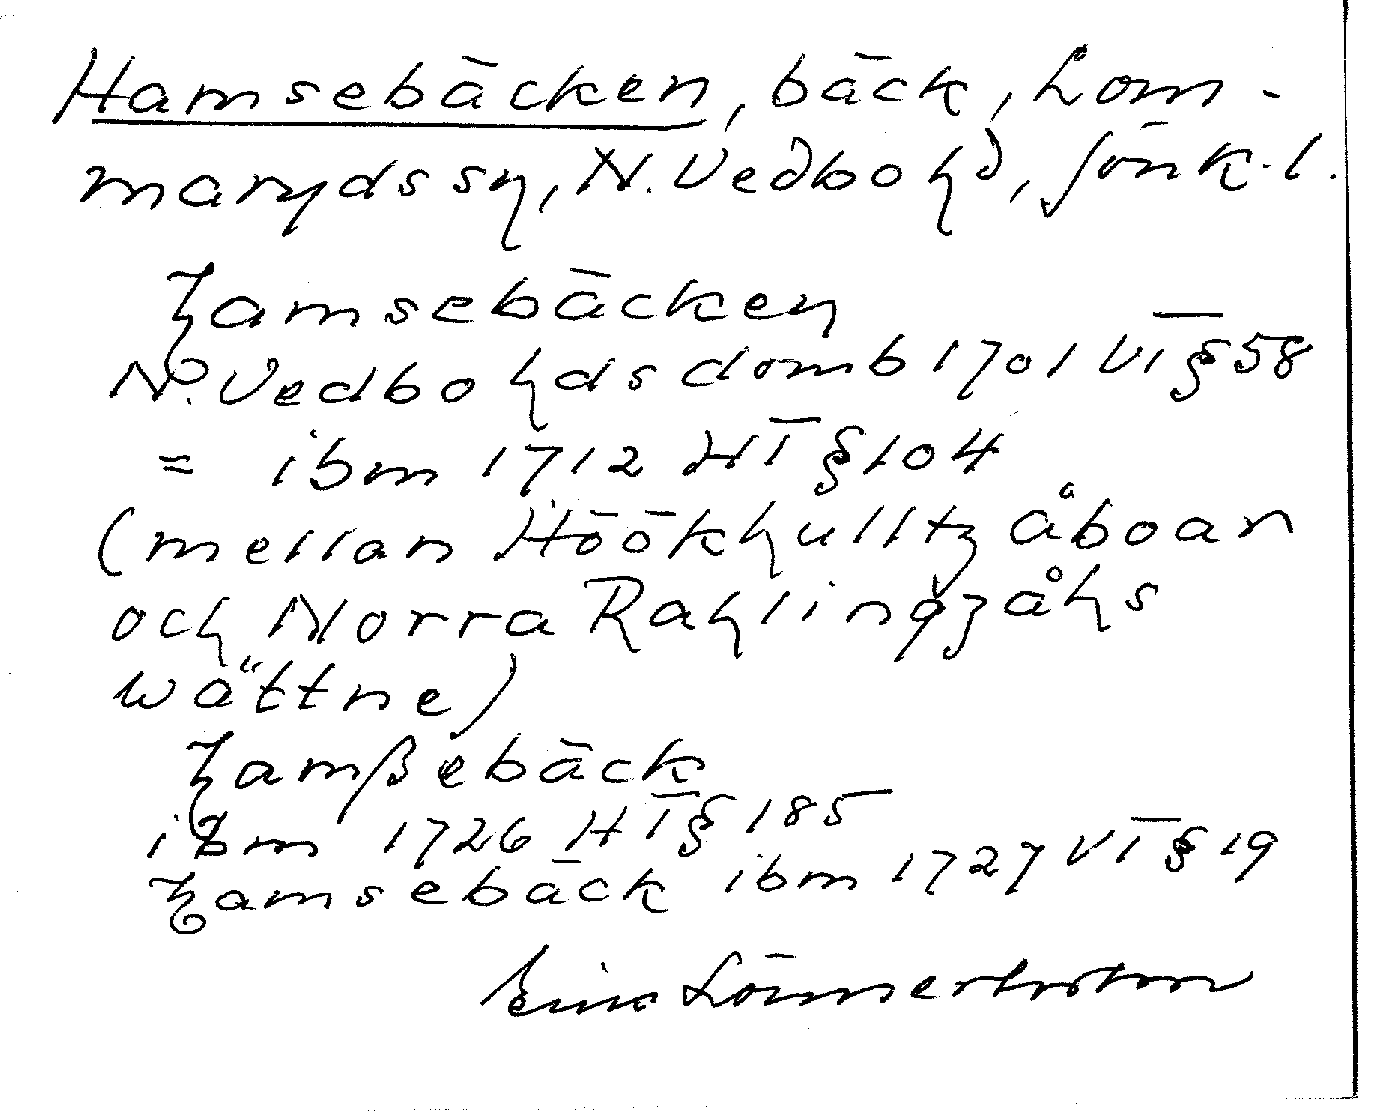 Hamsebäcken, bäck, Lom-
maryds sn, N. Vedbo hd, Jönk. l.
hamsebäcken
N. Vedbo hds domb 1701 VT § 58
= ibm 1712 HT § 104
(mellan Höökhulltz åboar
och Norra Rahlingzåhs
wättne)
hamßebäck
ibm 1726 HT § 185
hamsebäck ibm 1727 VT § 19
Eric Lönnerholm